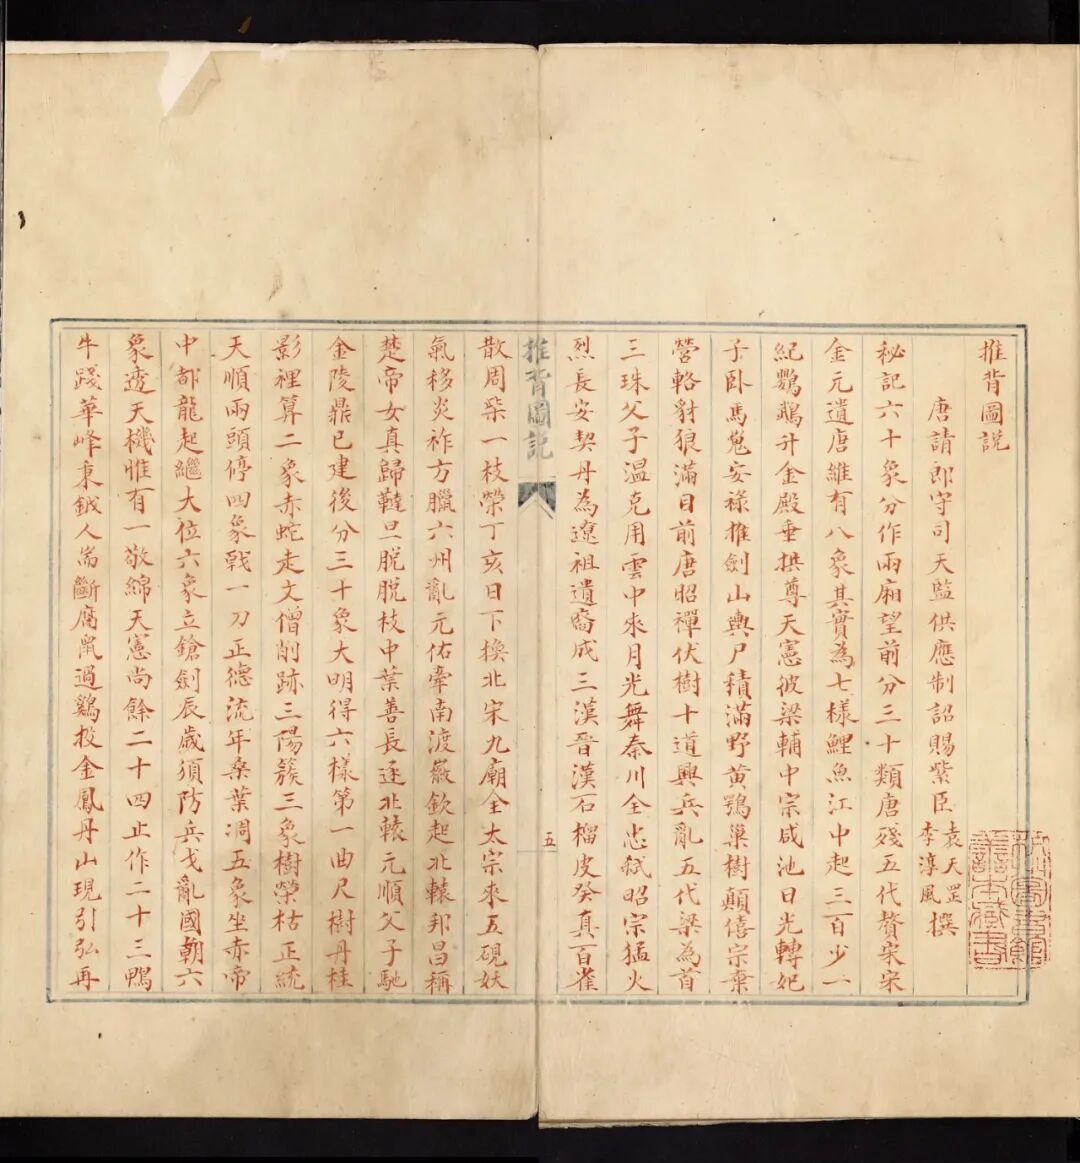 推背圖說
唐請郎守司天監供應制詔賜紫臣袁天罡李淳風撰
秘記六十象分作兩廂望前分三十類唐殘五代贅宋宋
金元遺唐維有八象其實為七樣鯉魚江中起三百少一
紀鸚鵡升金殿垂拱尊天憲彼梁輔中宗咸池日光轉妃
子卧馬嵬安祿推劍山輿尸積滿野黃鶚巢樹顛僖宗棄
營輅豺狼滿目前唐昭禪伏樹十道興兵亂五代梁為首
三珠父子溫克用雲中來月光舞秦川全忠弒昭宗猛火
烈長安契丹為遼祖遺裔成三漢晉漢石榴皮癸真百雀
推背圖說
五
散周柴一枝榮丁亥日下換北宋九廟全太宗來五硯妖
氣移炎祚方臘六州亂元佑牽南渡徽欽起北轅邦昌稱
楚帝女真歸韃旦脫脫枝中葉善長逐北轅元順父子馳
金陵鼎已建後分三十象大明得六樣第一曲尺樹丹桂
影裡算二象赤蛇走文僧削跡三陽簇三象樹榮枯正統
天順兩頭停四象戰一刀正德流年桑葉凋五象坐赤帝
中都龍起繼大位六象立鎗劍辰歲須防兵戈亂國朝六
象邊天機惟有一敬綿天憲尚餘二十四止作二十三鴨
牛踐華峰秉鉞人耑斷腐鼠過鷄投金鳳丹山現引弘再